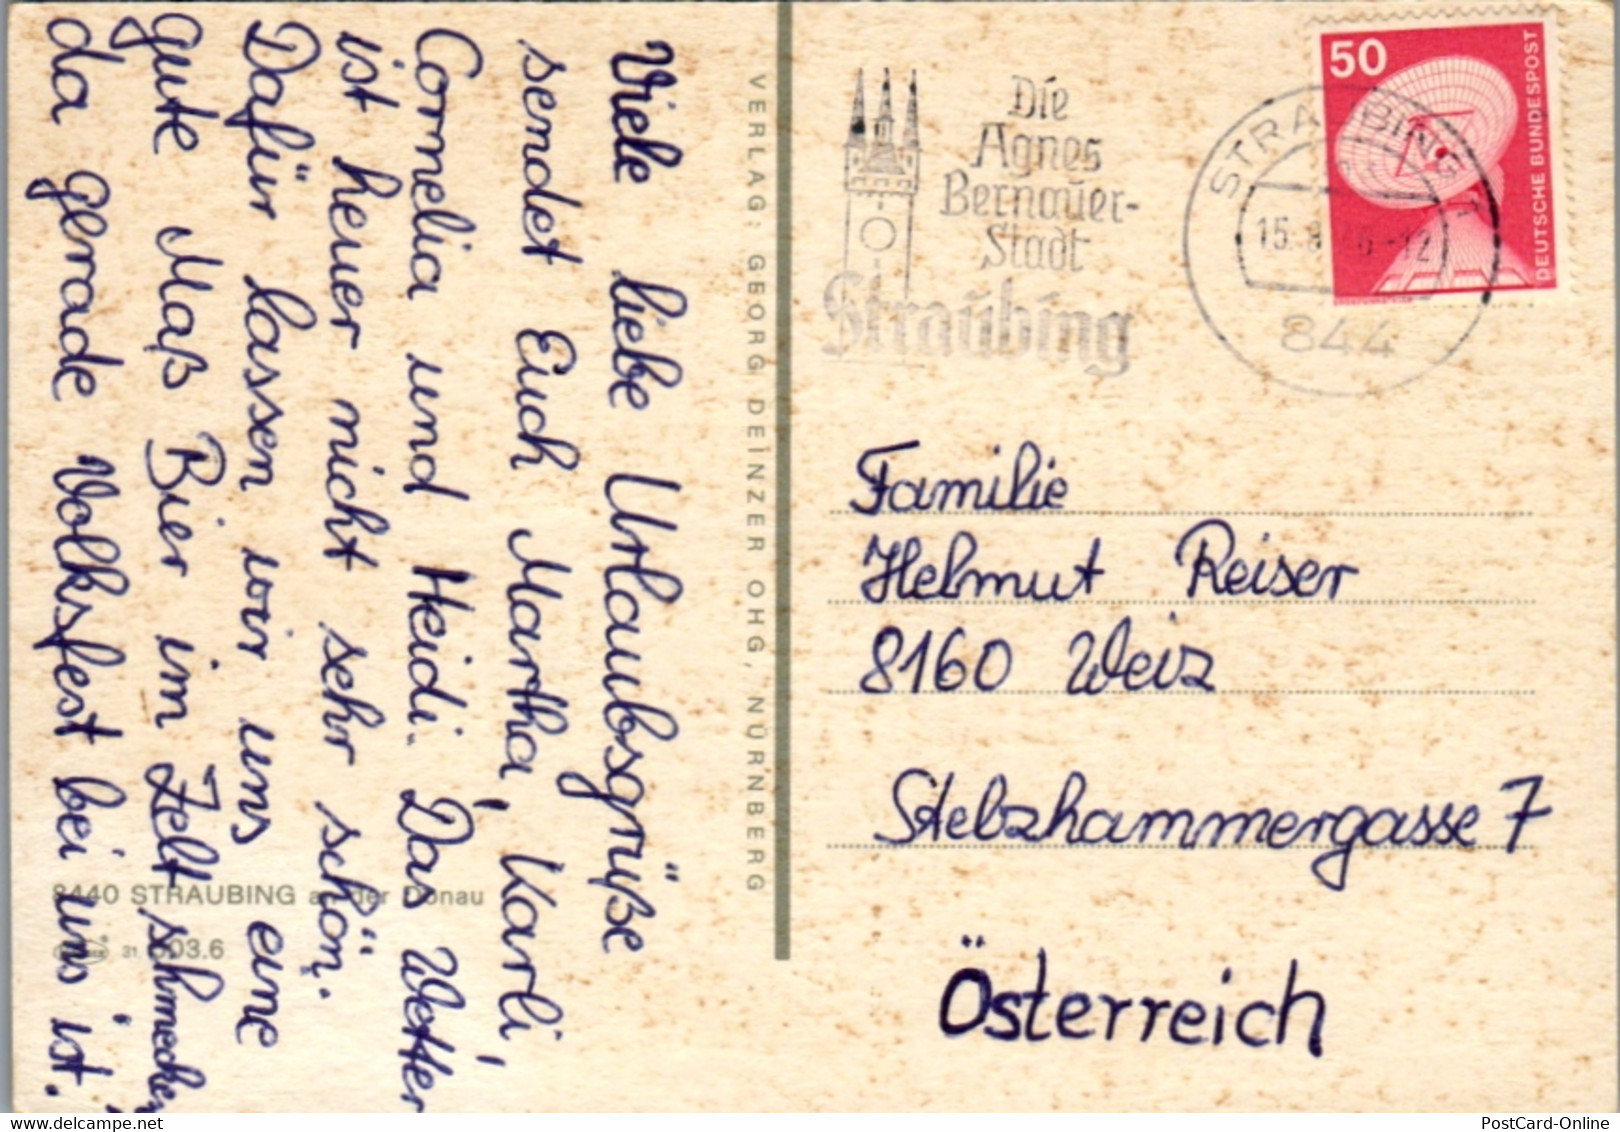 Viele liebe Urlaubsgrüße
sendet Euch Martha, Karli,
Cornelia und Heidi. Das Wetter
ist heuer nicht sehr schön.
Dafür lassen wir uns eine
gute Maß Bier im Zelt schmecken,
da gerade Volksfest bei uns ist.
VERLAG: GEORG DEINZER OHG, NÜRNBERG
8440 STRAUBING an der Donau
31. 603.6
Die
Agnes
Bernauer-
Stadt
Straubing
STRAUBING 1
15. 8. 76-12
844
50
DEUTSCHE BUNDESPOST
Familie
Helmut Reiser
8160 Weiz
Stelzhammergasse 7
Österreich
PostCard-Online